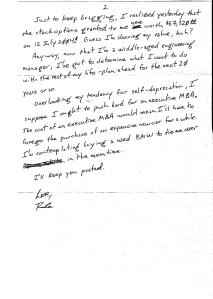 2
Just to keep bragging, I realized yesterday that
the stock options granted to me were worth
on 12 July Guess I'm showing my value, huh?
Anyway, now that I'm a middle-aged engineering
manager, I've got to determine what I want to do
with the rest of my life - plan ahead for the next 20
years or so.
Overlooking my tendency for self-depreciation, I
suppose I ought to push hard for an executive MBA.
The cost of an executive MBA would mean I'll have to
forego the purchase of an expensive new car for a while.
I'm contemplating buying a used BMW to tie me over
in the meantime.
I'll keep you posted.
Love,